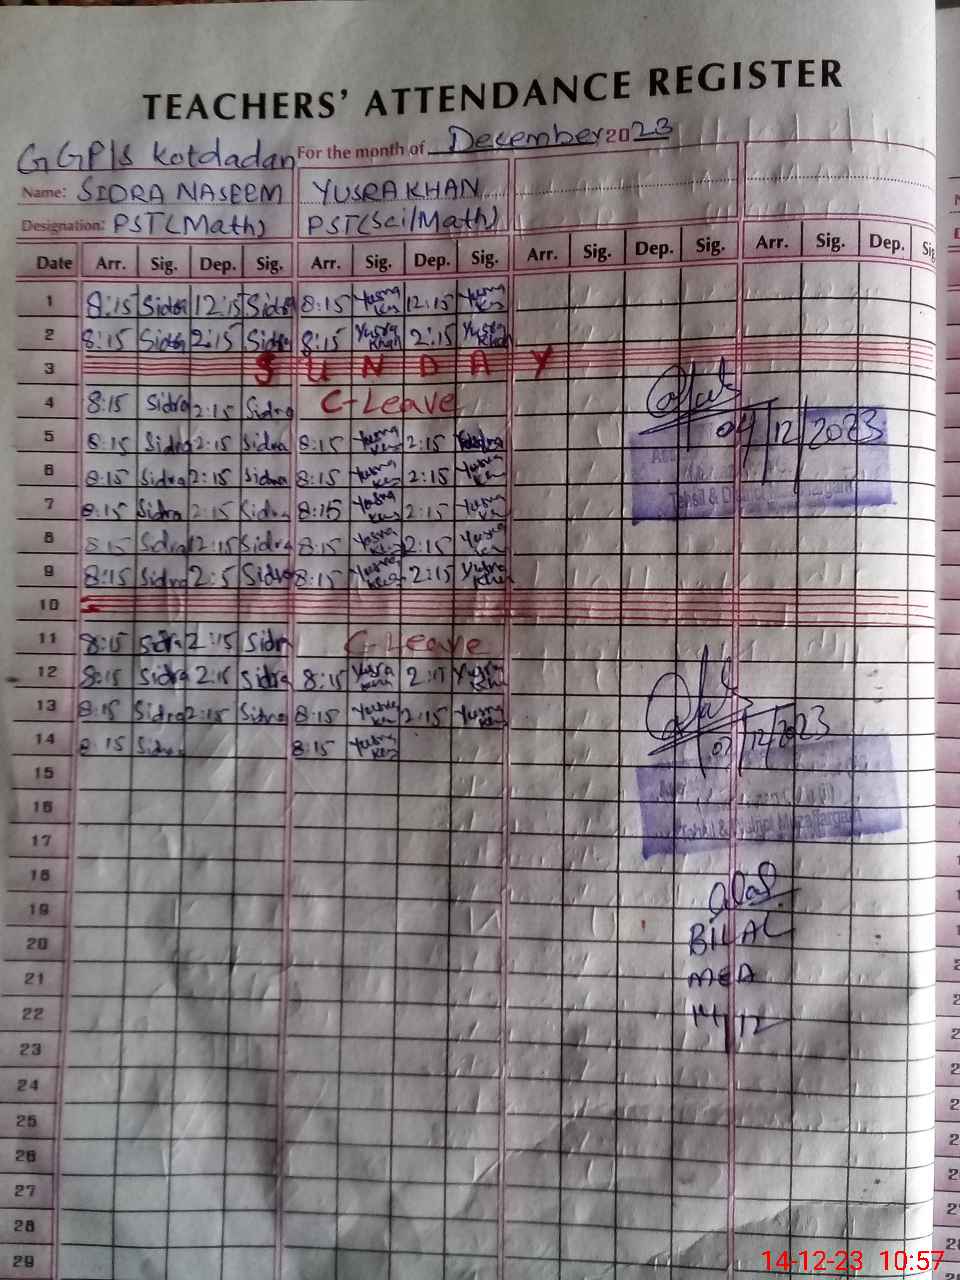 TEACHERS' ATTENDANCE REGISTER
GGP/S Kotdadan For the month of December 2023
Name: SIDRA NASEEM YUSRA KHAN
Designation: PST(Math) PST(Sci/Math)
Date Arr. Sig. Dep. Sig. Arr. Sig. Dep. Sig. Arr. Sig. Dep. Sig. Arr. Sig. Dep. Sig
1 8:15 Sidra 12:15 Sidra 8:15 12:15
2 8:15 Sidra 2:15 Sidra 8:15 Yusra Khan 2:15 Yusra Khan
3 SUNDAY
4 8:15 Sidra 2:15 Sidra C-Leave
04/12/2023
5 8:15 Sidra 2:15 Sidra 8:15 2:15
6 8:15 Sidra 2:15 Sidra 8:15 2:15
7 8:15 Sidra 2:15 Sidra 8:15 2:15
8 8:15 Sidra 12:15 Sidra 8:15 2:15
9 8:15 Sidra 2:5 Sidra 8:15 2:15 Yusra
10
11 8:15 Sidra 2:15 Sidr C-Leave
12 8:15 Sidra 2:15 Sidra 8:15 Yusra 2:15 Yusra
13 8:15 Sidra 2:15 Sidra 8:15 2:15 Yusra
14 8:15 Sidra 8:15
/12/2023
15
16
17
18
19
20 BILAL
21 MEA
22 14/12
23
24
25
26
27
28
29
14-12-23 10:57